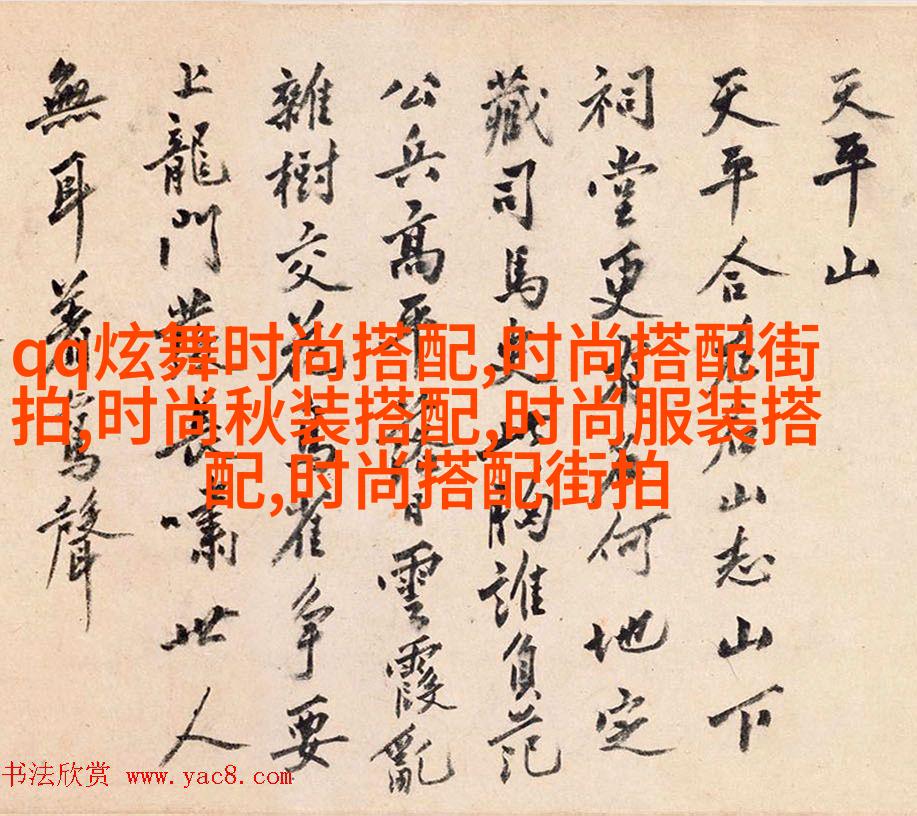 天平山
天平合石山志山下
祠堂更何地定
藏司馬史此胸誰負范
公兵高平雲霞亂
雜樹交花鳥雀爭要
上龍門長嘯世人
無耳著鸞聲
qq炫舞时尚搭配,时尚搭配街
拍,时尚秋装搭配,时尚服装搭
配,时尚搭配街拍
书法欣赏 www.yac8.com